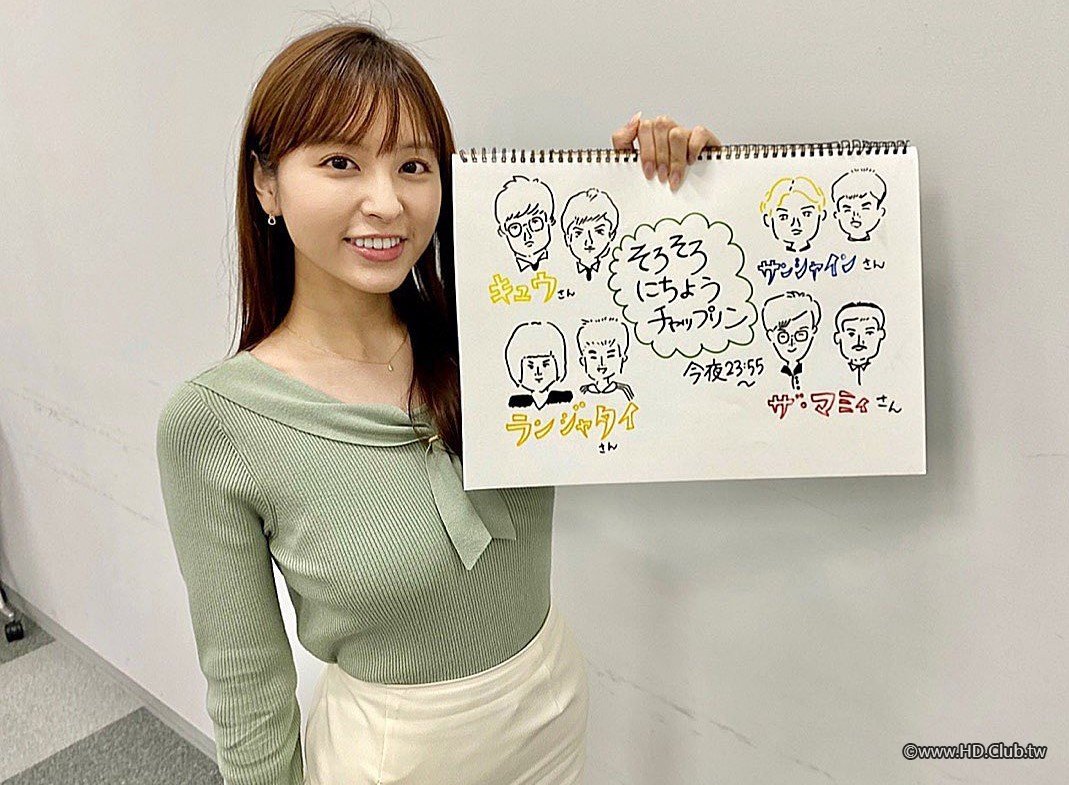 キュウさん
ランジャタイ
さん
そろそろ
にちよう
チャップリン
今夜23:55
〜
サンシャインさん
ザ・マミィさん
©www.HD.Club.tw